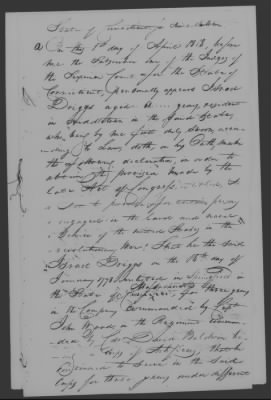 State of Connecticut
On the 1st day of April 1818, before
me the Subscriber one of the Judges of
the Superior Court of the State of
Connecticut, personally appeared Israel
Driggs aged years, resident
in Middletown in the said State,
who being by me first duly sworn accor-
ding to Law, doth, on his Oath, make
the following declaration, in order to
obtain the provision made by the
late Act of Congress entitled, A
to provide for certain persons
engaged in the land and naval
Service of the United States in the
revolutionary War: That he the said
Israel Driggs on the 16th day of
January 1778 enlisted in Springfield in
the State of Massachusetts for three years
in the Company Commanded by Capt
John Wood in the Regiment Comman-
ded by Col. David Baldwin
of Artificers, that he
continued to serve in the said
for three years under different